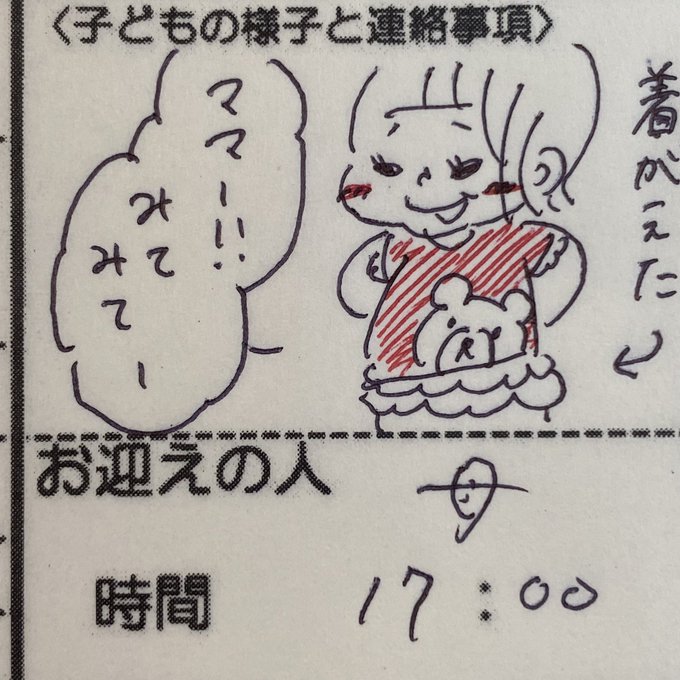 〈子どもの様子と連絡事項〉
着がえた
ママー!!
みて
みてー
お迎えの人
母
時間
17:00